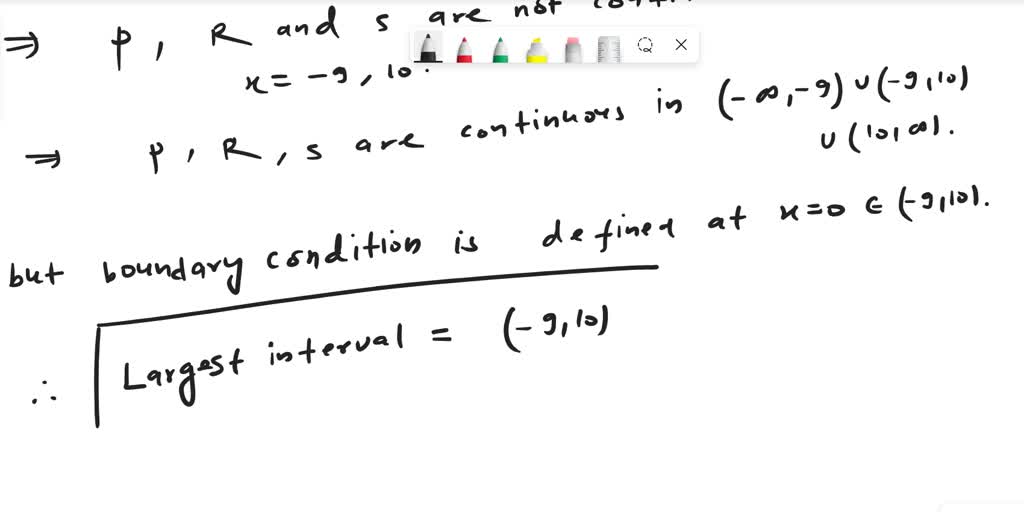 ⇒ P, R and s are not
x = -9, 10.
⇒ P, R, s are continuors in (-∞,-9) ∪ (-9,10)
∪ (10,∞).
but boundary condition is defined at x=0 ∈ (-9,10).
∴ Largest interval = (-9,10)